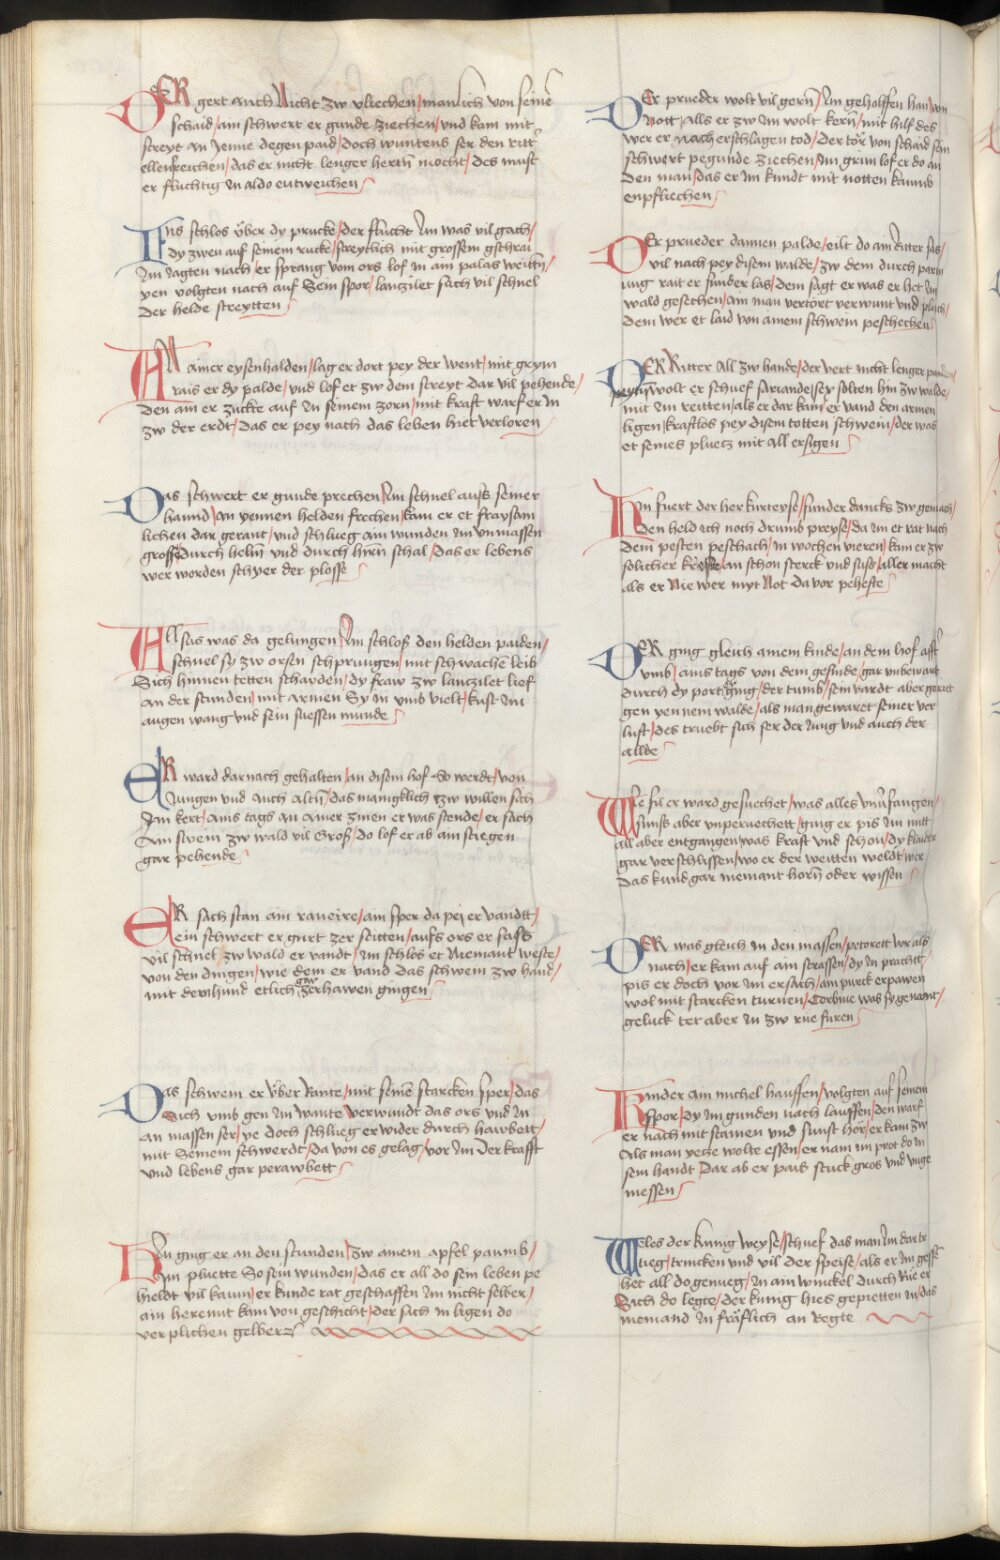 DER gert auch Nicht zw vliechen / manlich von seinē
schaid / ain schwert er gunde ziechen / vnd kam mit
streyt an Jenne degen paid / doch wuntens ser den ritt
ellenreichen / das er nicht lenger herttn mocht / des muest
er fluchtig in aldo entweichen /
Ins schlos vber dy prucke / der flucht Im was vil gach /
dy zwen auf seinem rucke / streytlich mit grossem gschrai
Im Jagten nach / er sprang vom ors lof in ain palas weittn /
yen volgten nach auf Sein spor / lanzilet sach vil schnel
Der helde streytten /
AN ainer eysenhalden / lag er dort pey der went / mit grym
rais er dy palde / vnd lof et zw dem streyt dar vil pehende /
Den ain er zuckte auf in seinem zorn / mit kraft warf er in
zw der erdt / Das er pey nach das leben hiet verloren
Das schwert er gunde prechen / Im schnel auss seiner
hannd / an yennen helden frechen / kam er et fraysam
lichen dar gerant / vnd schlueg ain wunden im vnmassen
grosse durch helm vnd durch hirn schal / Das er lebens
wer worden schyer der plosse /
Allsus was da gelungen / Im schlos den helden paiden /
schnel sy zw orsen schprungen / mit schwachē leib
Sich hinnen tetten schayden / dy fraw zw lanzilet lief
an der stunden / mit armen Sy in vmb vielt / kust im
augen wang vnd sein suessen munde /
ER ward darnach gehalten / an disem hof So werdt / von
Jungen vnd Auch altn / das manigklich zw willen sich
Im kert / ains tags an ainer zinen er was stende / er sach
Ain swein zw wald vil Groß / do lof er ab ain stiegen
gar pehende /
ER sach stan ain raveire / ain sper da pej er vandtt /
ein schwert er gurt zer seitten / aufs ors er sass
vil schnel / zw wald er vandt / im schlos et Niemant weste /
von den dingen / wie dem er vand das schwein zw hand /
mit dem hund etlich gar zerhawen gingen /
Das schwein er vber Rante / mit seinē starcken sper / das
Sich vmb gen im wante / verwundt das ors vnd in
an massen ser / ye doch schlueg er wider durch hawbett /
mit Seinem schwerdt / da von es gelag / vor im Der krafft
vnd lebens gar perawbett /
Hin ging er an den stunden / zw ainem apfel paumb /
Im pluette So sein wunden / das er all do sein leben pe
hieldt vil kaum / er kunde rat geschaffen im nicht selber /
ain heremit kam von geschicht / der sach in ligen do
ver plichen gelber
Der prueder wolt vil gern / Im geholffen han von
Nott / alls er zw im wolt kern / mit hilf des
wer er nach erschlagen tod / Der tor von schaid sein
schwert pegunde ziechen / im grim lof er do an
den man / das er im kundt mit notten kaumb
enpfliechen /
Der prueder dannen palde / eilt do ain Ritter sas /
vil nach pey disem walde / zw dem durch parm
ung rait er sunder las / dem sagt er was er het im
wald gesechen / ain man vertort verwunt vnd plaich /
Dem wer et laid von ainem schwein peschechen
DER Ritter All zw hande / der vert nicht lenger
wolt er schuef sariande / sey solten hin zw walde /
mit im reitten / als er dar kam / er vand den armen
ligen / kraftlos pey disem totten schwein / der was
et seines pluetz mit all ersigen /
Hin fuert der her kurteyse / sunder dancks zw gemach /
Den held ich noch drumb preyse / da im et rat nach
dem pesten peschach / in wochen vieren / kam er zw
solicher krefte / an schon sterck vnd suss / aller macht
als er Nie wer myt Not da vor pehefte /
ER ging gleich ainem kinde / an dem hof afft
vmb / ains tags von dem gesinde / gar vnbewart
durch dy port ging / der tumb / sein vardt aber
gen yennem walde / als man gewaret seiner ver
lust / des truebt sich ser der Jung vnd auch der
allde /
Wie fil er ward gesuechet / was alles vmfangen /
sunst aber vnperuechett / ging er pis im mitt
all aber entgangen / was kraft vnd schon / dy klaider
gar verschlissen / wo er der weitten weldt wer
das kund gar niemant horn oder wissen /
DER was gleich in den massen / petorett vor als
nach / er kam auf ain strassen / dy in prachtt
pis er doch vor im ersach / ain purck erpawen
wol mit starcken turnen / Corbine was sy genant /
geluck tet aber in zw rue furen
Kinder ain michel hauffen / volgten auf seinem
Spor / dy im gunden nach lauffen / den warf
er nach mit stainen vnd sunst hor / er kam zw
Als man yetze wolte essen / er nam im prot do in
sein handt Dar ab er pais stuck gros vnd vnge
messen /
Weles der kunig weyse / schuef das man im dar tr
ueg / trincken vnd vil der speise / als er im gesse
het all do genueg / in ain winckel durch Rue er
Sich do legte / der kunig hies gepietten in / das
niemand in fräflich an Regte